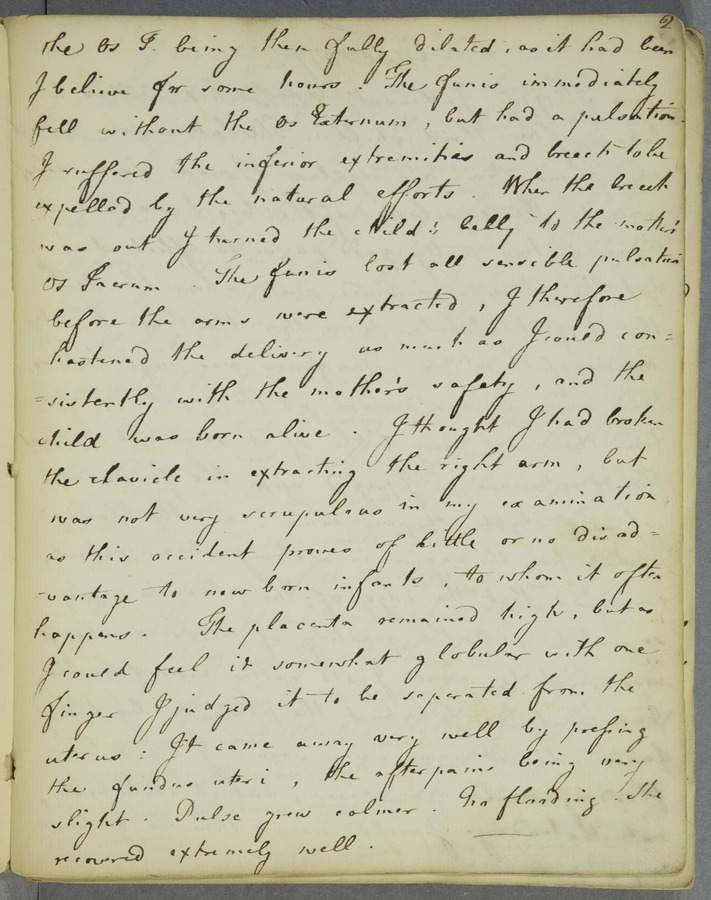 62
the Os P. being then fully dilated, as it had been
I believe for some hours. The funis immediately
fell without the Os Externum, but had a pulsation.
I suffered the inferior extremities and breech to be
expelled by the natural efforts. When the breech
was out I turned the child's belly to the mother's
Os Sacrum. The funis lost all sensible pulsation
before the arms were extracted, I therefore
hastened the delivery as much as I could con=
=sistently with the mother's safety, and the
child was born alive. I thought I had broken
the clavicle in extracting the right arm, but
was not very scrupulous in my examination
as this accident proves of little or no disad=
=vantage to new born infants, to whom it often
happens. The placenta remained high, but as
I could feel it somewhat globular with one
finger I judged it to be seperated from the
uterus: It came away very well by pressing
the fundus uteri, the afterpains being very
slight. Pulse grew calmer. No flooding. She
recovered extremely well.